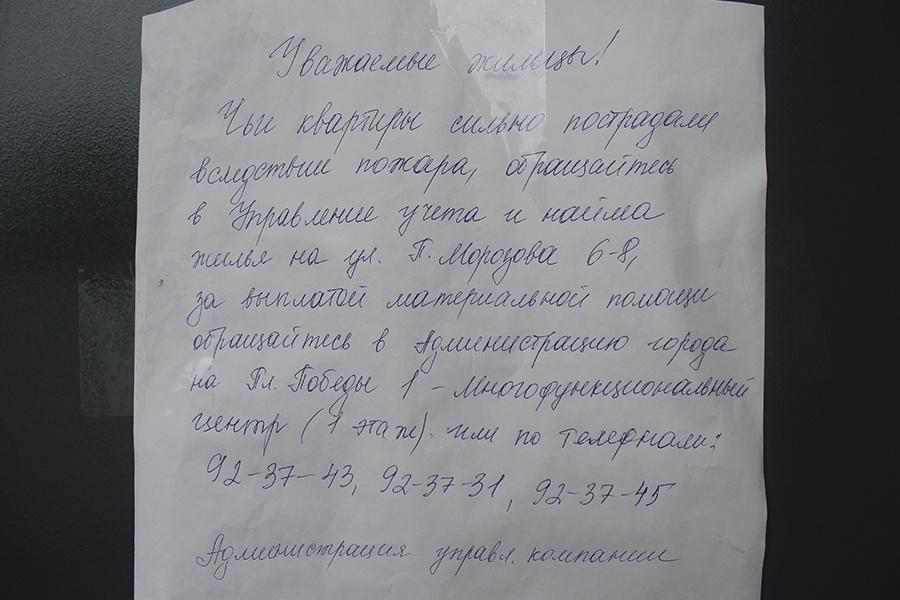 Уважаемые жильцы!
Чьи квартиры сильно пострадали
вследствии пожара, обращайтесь
в Управление учета и найма
жилья на ул. П. Морозова 6-8,
за выплатой материальной помощи
обращайтесь в Администрацию города
на Пл. Победы 1 - многофункциональный
центр (1 этаж). или по телефонам:
92-37-43, 92-37-31, 92-37-45
Администрация управл. компании